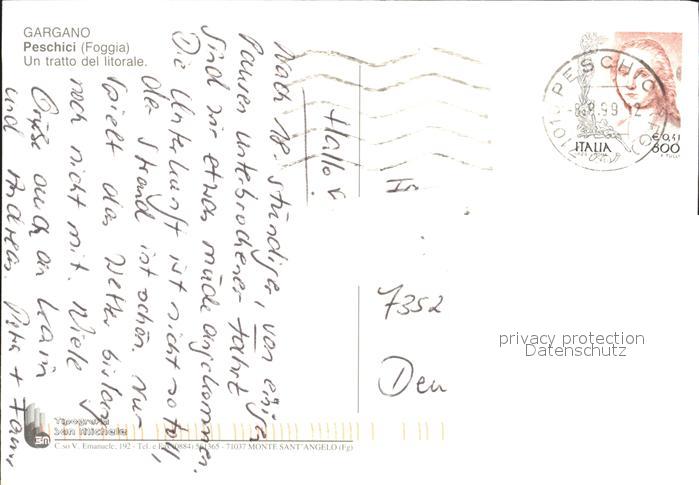 GARGANO
Peschici (Foggia)
Un tratto del litorale.
Hallo
Nach 18-stündiger, von einigen
Pausen unterbrochener Fahrt
sind wir etwas müde angekommen.
Die Unterkunft ist nicht so toll,
der Strand ist schön. Nur
spielt das Wetter bislang
noch nicht mit. Viele
Grüße auch an
und Andreas. Petra + Fam.
71010 PESCHICI (FG)
-8.9.99 12
ITALIA
€ 0,41
800
7352
Deu
privacy protection
Datenschutz
Tipografia
San Michele
C.so V. Emanuele, 192 - Tel. e Fax (0884) 561365 - 71037 MONTE SANT'ANGELO (Fg)